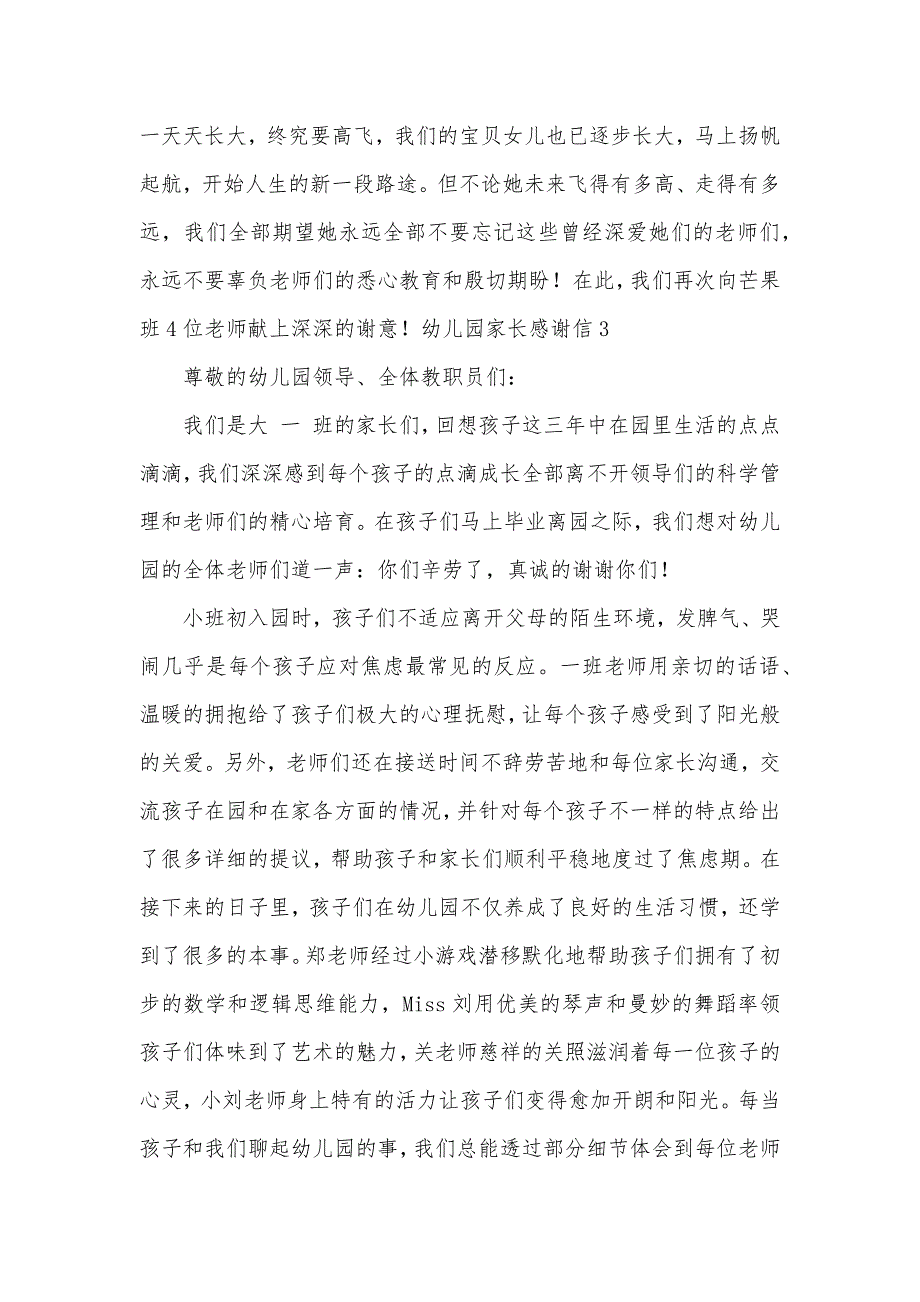 一天天长大，终究要高飞，我们的宝贝女儿也已逐步长大，马上扬帆
起航，开始人生的新一段路途。但不论她未来飞得有多高、走得有多
远，我们全部期望她永远全部不要忘记这些曾经深爱她们的老师们，
永远不要辜负老师们的悉心教育和殷切期盼！在此，我们再次向芒果
班4位老师献上深深的谢意！幼儿园家长感谢信3
尊敬的幼儿园领导、全体教职员们：
我们是大 一 班的家长们，回想孩子这三年中在园里生活的点点
滴滴，我们深深感到每个孩子的点滴成长全部离不开领导们的科学管
理和老师们的精心培育。在孩子们马上毕业离园之际，我们想对幼儿
园的全体老师们道一声：你们辛劳了，真诚的谢谢你们！
小班初入园时，孩子们不适应离开父母的陌生环境，发脾气、哭
闹几乎是每个孩子应对焦虑最常见的反应。一班老师用亲切的话语、
温暖的拥抱给了孩子们极大的心理抚慰，让每个孩子感受到了阳光般
的关爱。另外，老师们还在接送时间不辞劳苦地和每位家长沟通，交
流孩子在园和在家各方面的情况，并针对每个孩子不一样的特点给出
了很多详细的提议，帮助孩子和家长们顺利平稳地度过了焦虑期。在
接下来的日子里，孩子们在幼儿园不仅养成了良好的生活习惯，还学
到了很多的本事。郑老师经过小游戏潜移默化地帮助孩子们拥有了初
步的数学和逻辑思维能力，Miss刘用优美的琴声和曼妙的舞蹈率领
孩子们体味到了艺术的魅力，关老师慈祥的关照滋润着每一位孩子的
心灵，小刘老师身上特有的活力让孩子们变得愈加开朗和阳光。每当
孩子和我们聊起幼儿园的事，我们总能透过部分细节体会到每位老师